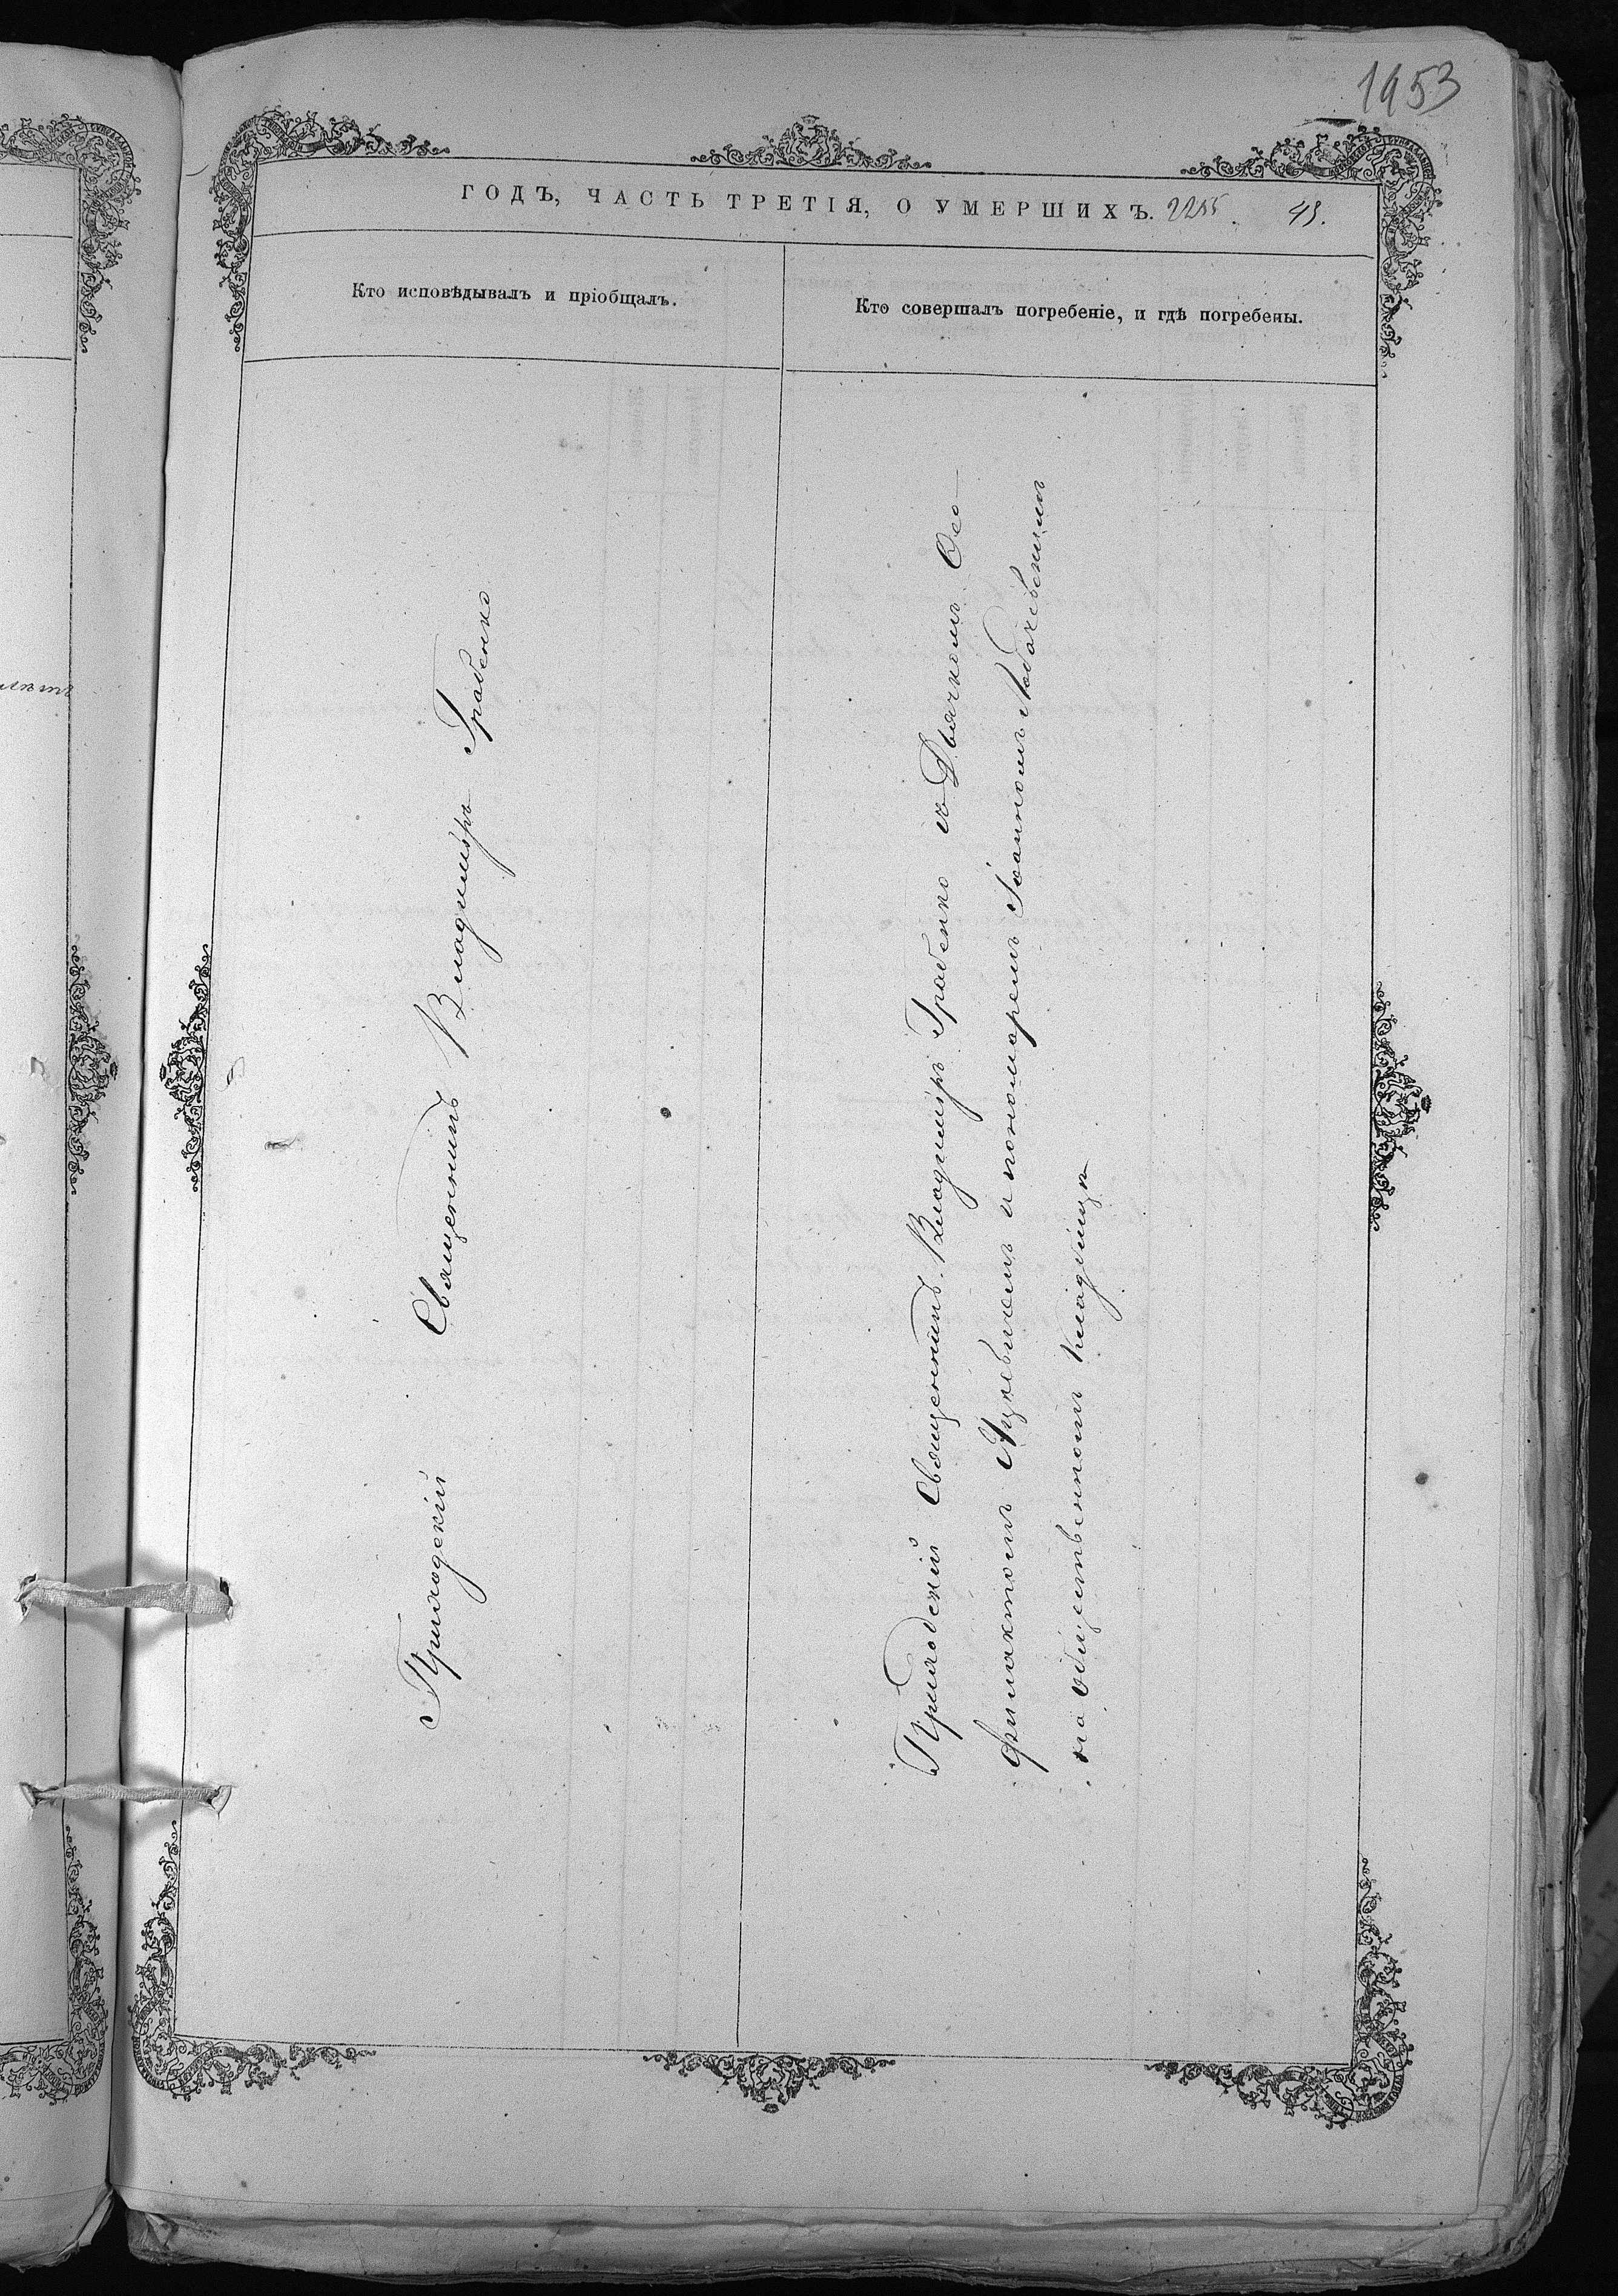 1953
ГОДЪ, ЧАСТЬ ТРЕТІЯ, О УМЕРШИХЪ. 2255. 43.
Кто исповѣдывалъ и пріобщалъ.
Кто совершалъ погребеніе, и гдѣ погребены.
Приходскій Священникъ Владиміръ Грабенко
Приходскій Священникъ Владиміръ Грабенко съ Дьячкомъ Ѳео-
филактомъ Яцкевичемъ и пономаремъ Іоанномъ Лобачевскимъ
на общественномъ кладбищѣ